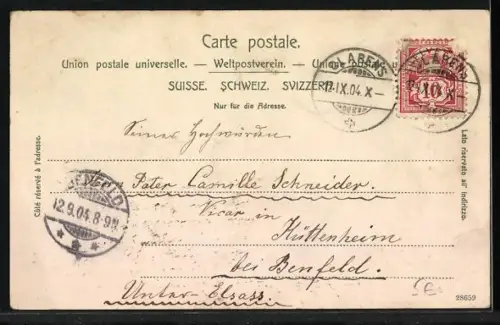 Carte postale.
Union postale universelle. — Weltpostverein. — Unione postale
SUISSE. SCHWEIZ. SVIZZERA.
Nur für die Adresse.
ARENS
IX.04. X—
10
Seiner Hochwürden
Pater Camille Schneider.
Vicar in
Hüttenheim
bei Benfeld.
Unter-Elsass
BENFELD
12.9.04. 8-9N
Côté réservé à l'adresse.
Lato riservato all' indirizzo.
28659